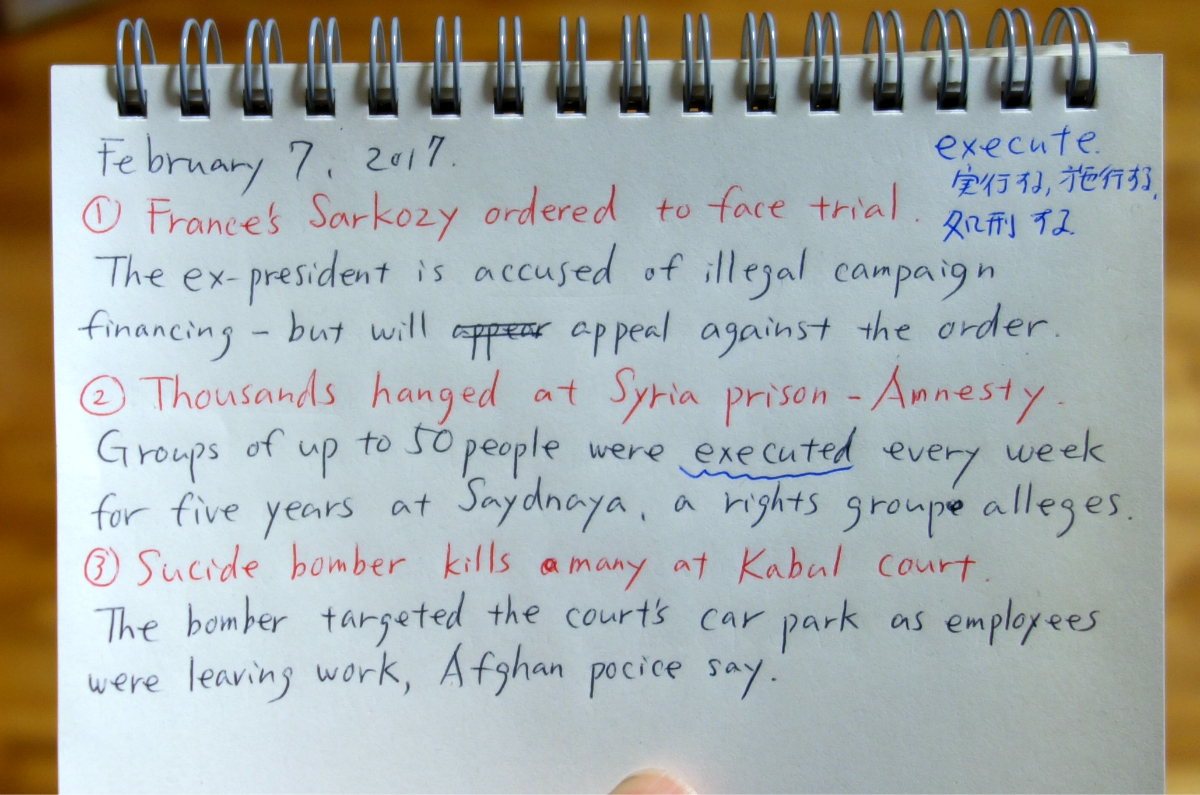 February 7, 2017.
execute.
実行する, 施行する,
処刑する
① France's Sarkozy ordered to face trial.
The ex-president is accused of illegal campaign
financing - but will appear appeal against the order.
② Thousands hanged at Syria prison - Amnesty.
Groups of up to 50 people were executed every week
for five years at Saydnaya, a rights groupe alleges.
③ Sucide bomber kills a many at Kabul court.
The bomber targeted the court's car park as employees
were leaving work, Afghan pocice say.